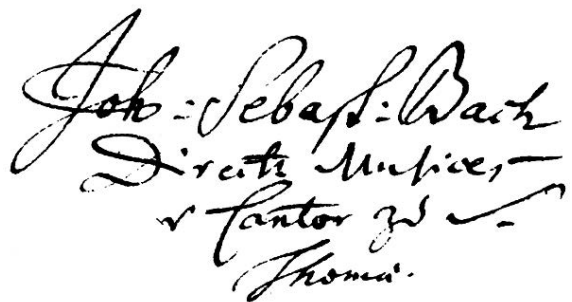 Joh: Sebast: Bach
Direct: Musices
u Cantor zu S.
Thomæ.